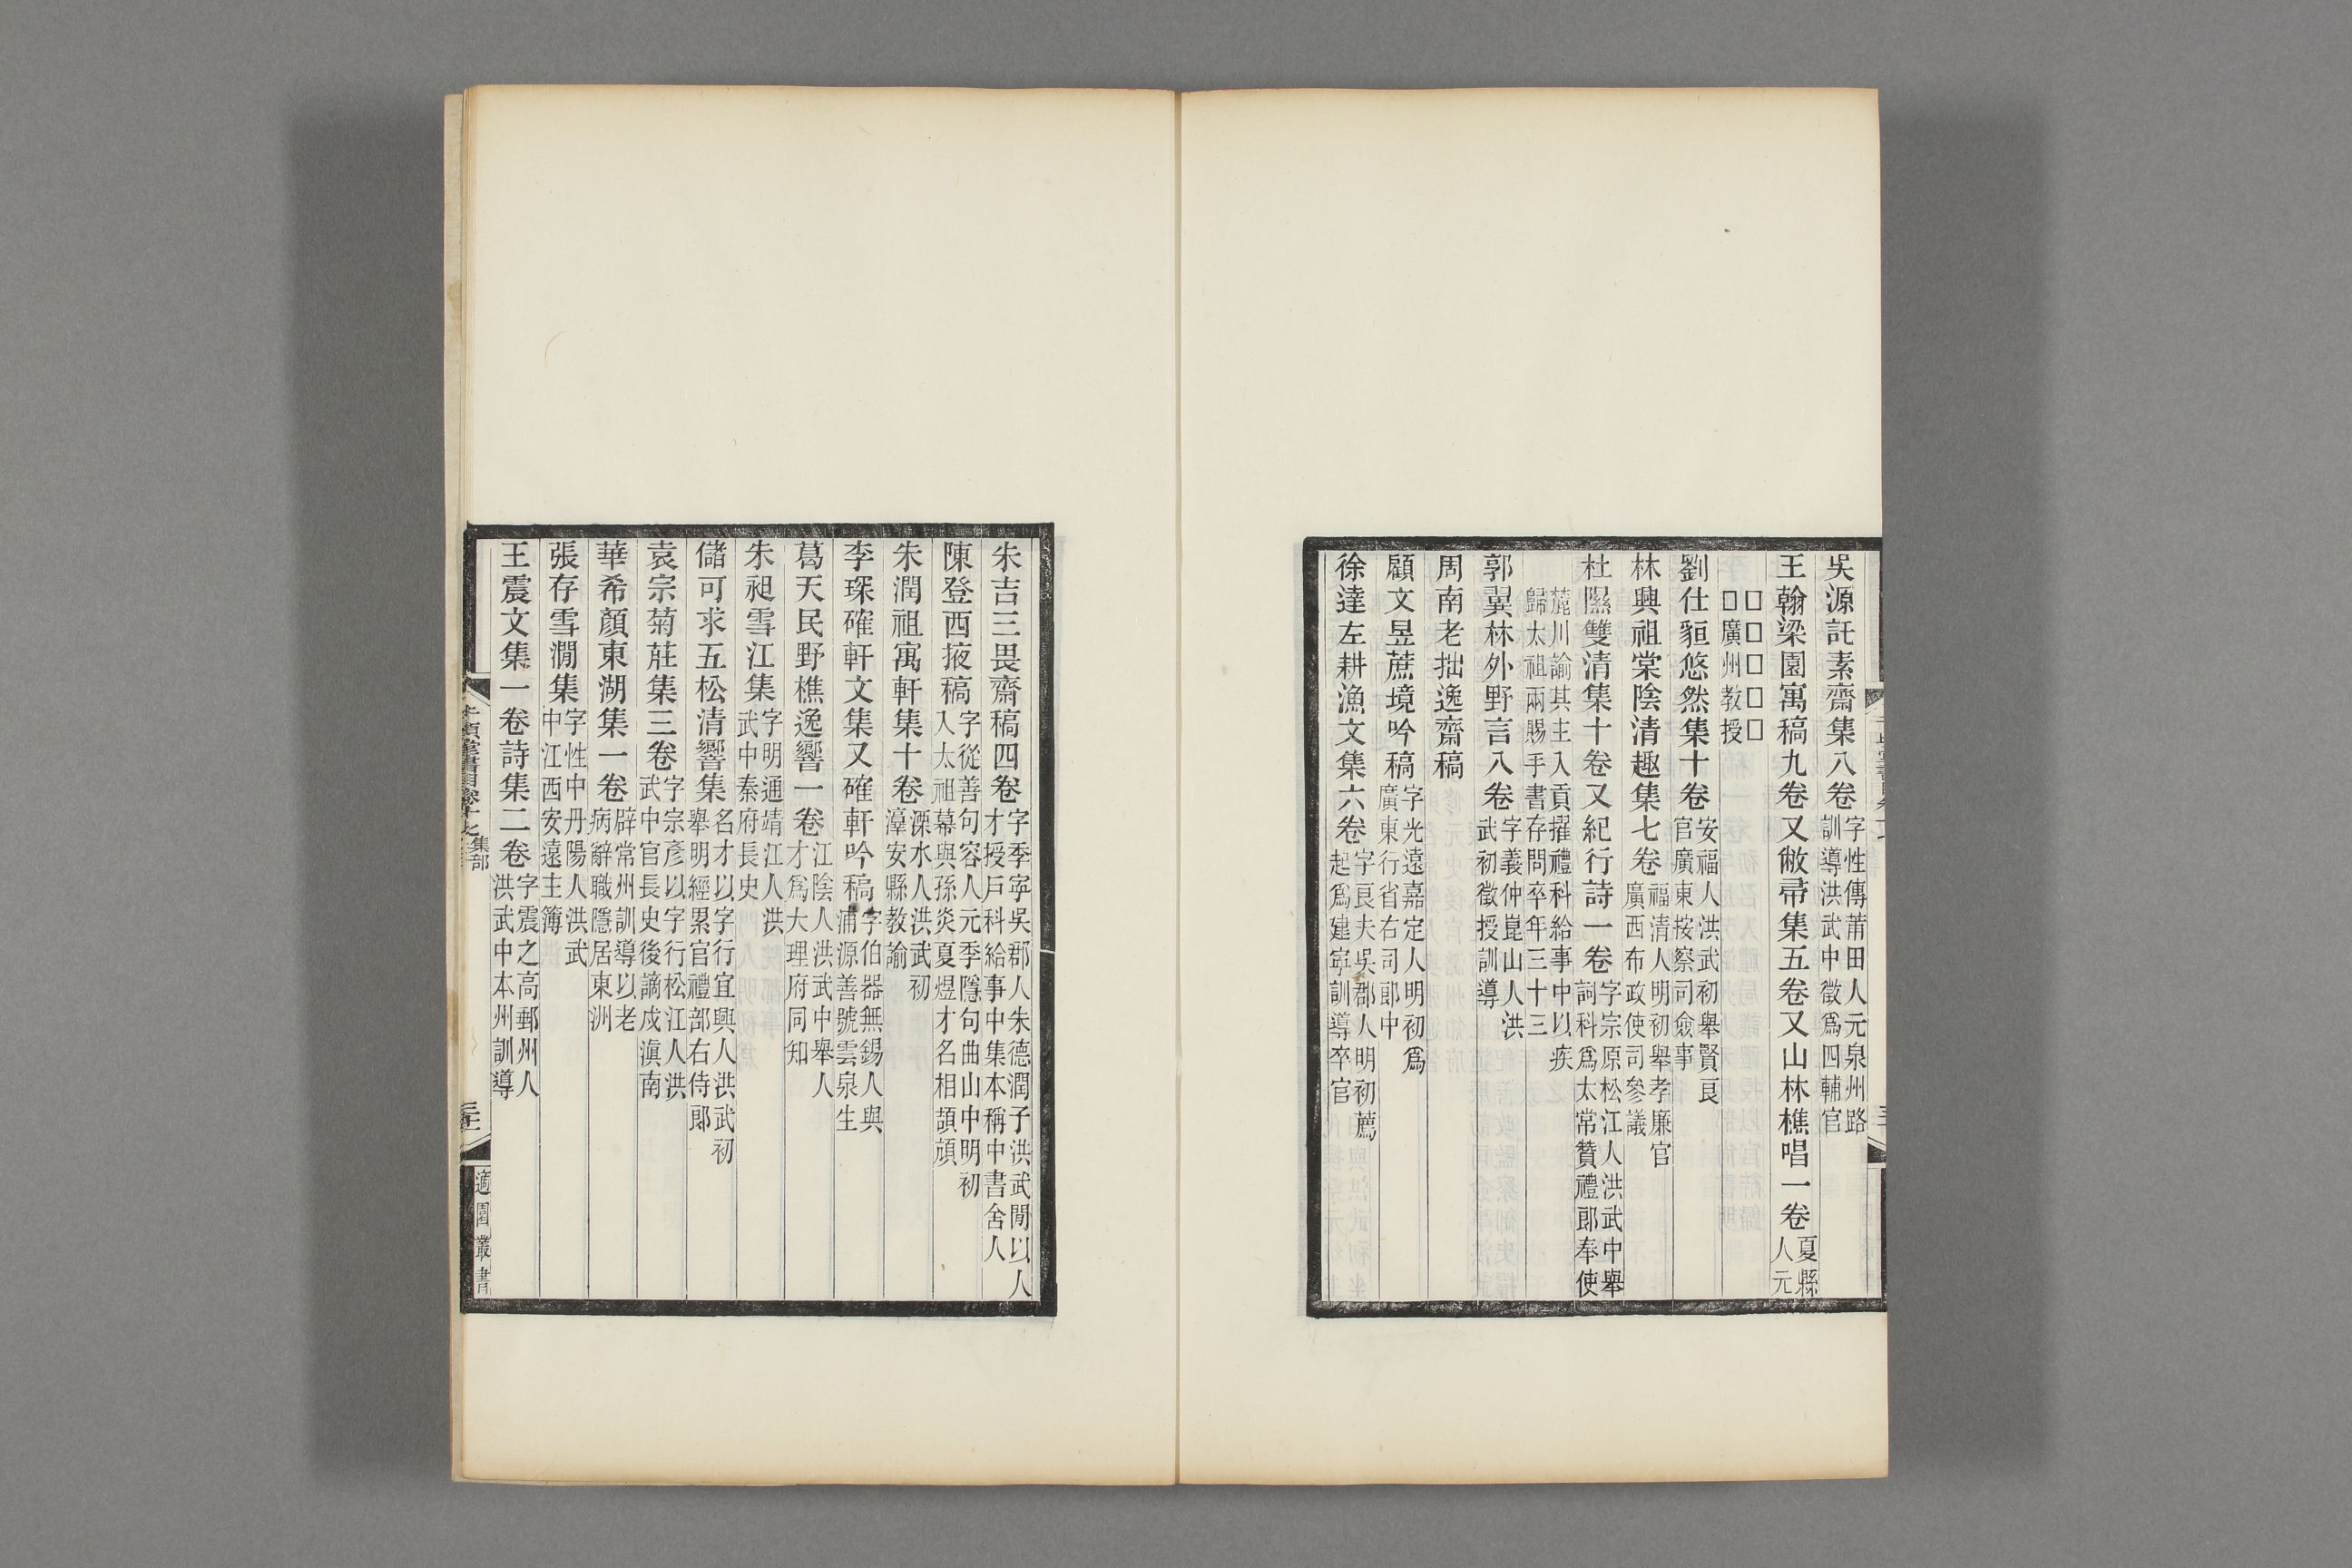 吳源託素齋集八卷字性傳莆田人元泉州路訓導洪武中徵爲四輔官
王翰梁園寓稿九卷又敝帚集五卷又山林樵唱一卷夏縣人元
□□□□□□廣州教授
劉仕貆悠然集十卷安福人洪武初舉賢良官廣東按察司僉事
林興祖棠陰清趣集七卷福清人明初舉孝廉官廣西布政使司參議
杜隰雙清集十卷又紀行詩一卷字宗原松江人洪武中舉詞科爲太常贊禮郎奉使
麓川諭其主入貢擢禮科給事中以疾歸太祖兩賜手書存問卒年三十三
郭翼林外野言八卷字義仲崑山人洪武初徵授訓導
周南老拙逸齋稿
顧文昱蔗境吟稿字光遠嘉定人明初爲廣東行省右司郎中
徐達左耕漁文集六卷字良夫吳郡人明初薦起爲建寧訓導卒官
朱吉三畏齋稿四卷字季寧吳郡人朱德潤子洪武閒以人才授戶科給事中集本稱中書舍人
陳登西掖稿字從善句容人元季隱句曲山中明初入太祖幕與孫炎夏煜才名相頡頏
朱潤祖寓軒集十卷溧水人洪武初漳安縣教諭
李琛確軒文集又確軒吟稿字伯器無錫人與浦源善號雲泉生
葛天民野樵逸響一卷江陰人洪武中舉人才爲大理府同知
朱昶雪江集字明通靖江人洪武中秦府長史
儲可求五松清響集名才以字行宜興人洪武初舉明經累官禮部右侍郎
袁宗菊莊集三卷字宗彥以字行松江人洪武中官長史後謫戍滇南
華希顏東湖集一卷辟常州訓導以老病辭職隱居東洲
張存雪澗集字性中丹陽人洪武中江西安遠主簿
王震文集一卷詩集二卷字震之高郵州人洪武中本州訓導
千頃堂書目卷十七 集部
適園叢書